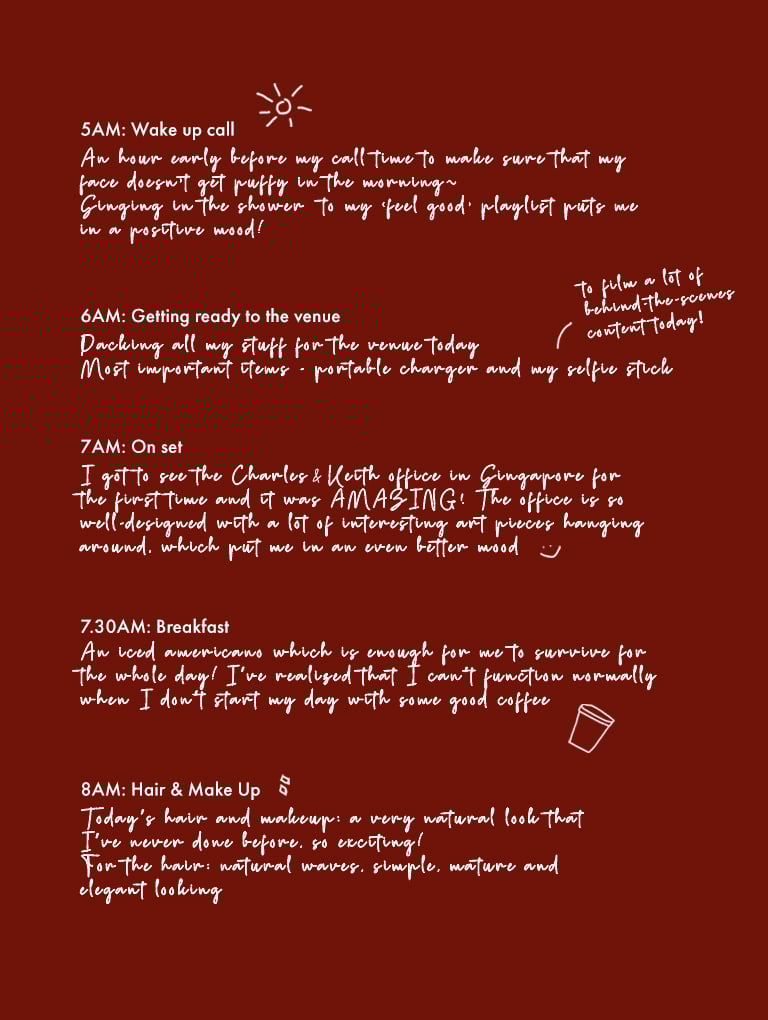 5AM: Wake up call
An hour early before my call time to make sure that my
face doesn't get puffy in the morning~
Singing in the shower to my 'feel good' playlist puts me
in a positive mood!
6AM: Getting ready to the venue
Packing all my stuff for the venue today
Most important items - portable charger and my selfie stick
to film a lot of
behind-the-scenes
content today!
7AM: On set
I got to see the Charles & Keith office in Singapore for
the first time and it was AMAZING! The office is so
well-designed with a lot of interesting art pieces hanging
around, which put me in an even better mood
7.30AM: Breakfast
An iced americano which is enough for me to survive for
the whole day! I've realised that I can't function normally
when I don't start my day with some good coffee
8AM: Hair & Make Up
Today's hair and makeup: a very natural look that
I've never done before, so exciting!
For the hair: natural waves, simple, mature and
elegant looking